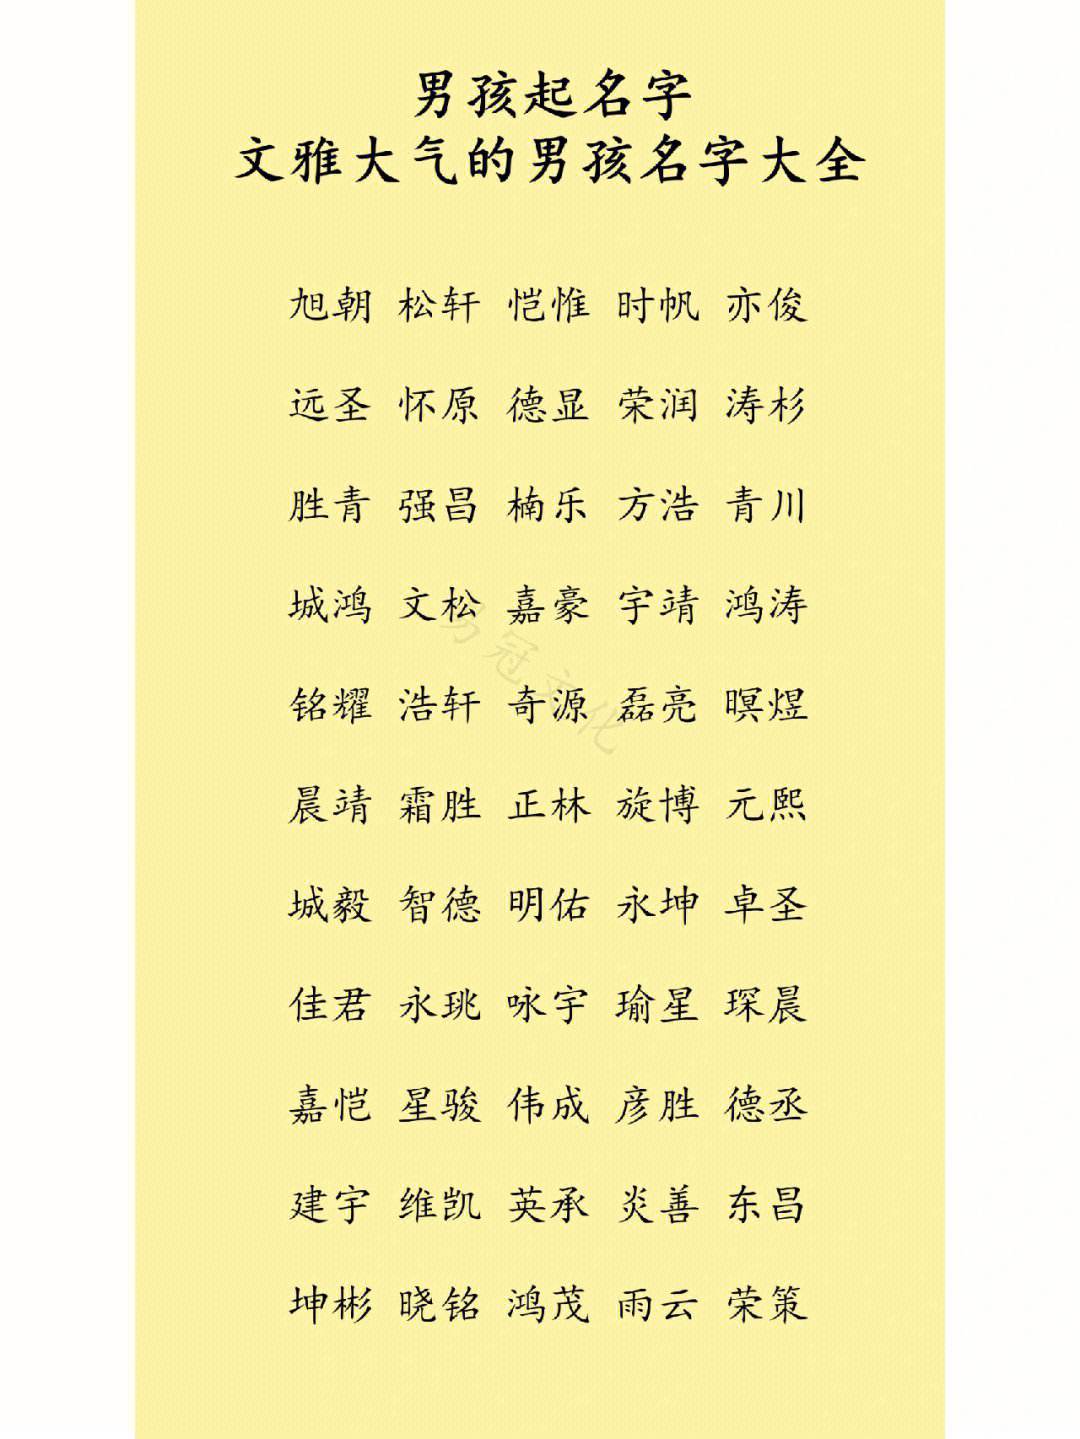 男孩起名字
文雅大气的男孩名字大全
旭朝 松轩 恺惟 时帆 亦俊
远圣 怀原 德显 荣润 涛杉
胜青 强昌 楠乐 方浩 青川
城鸿 文松 嘉豪 宇靖 鸿涛
易冠文化
铭耀 浩轩 奇源 磊亮 暝煜
晨靖 霜胜 正林 旋博 元熙
城毅 智德 明佑 永坤 卓圣
佳君 永珧 咏宇 瑜星 琛晨
嘉恺 星骏 伟成 彦胜 德丞
建宇 维凯 英承 炎善 东昌
坤彬 晓铭 鸿茂 雨云 荣策